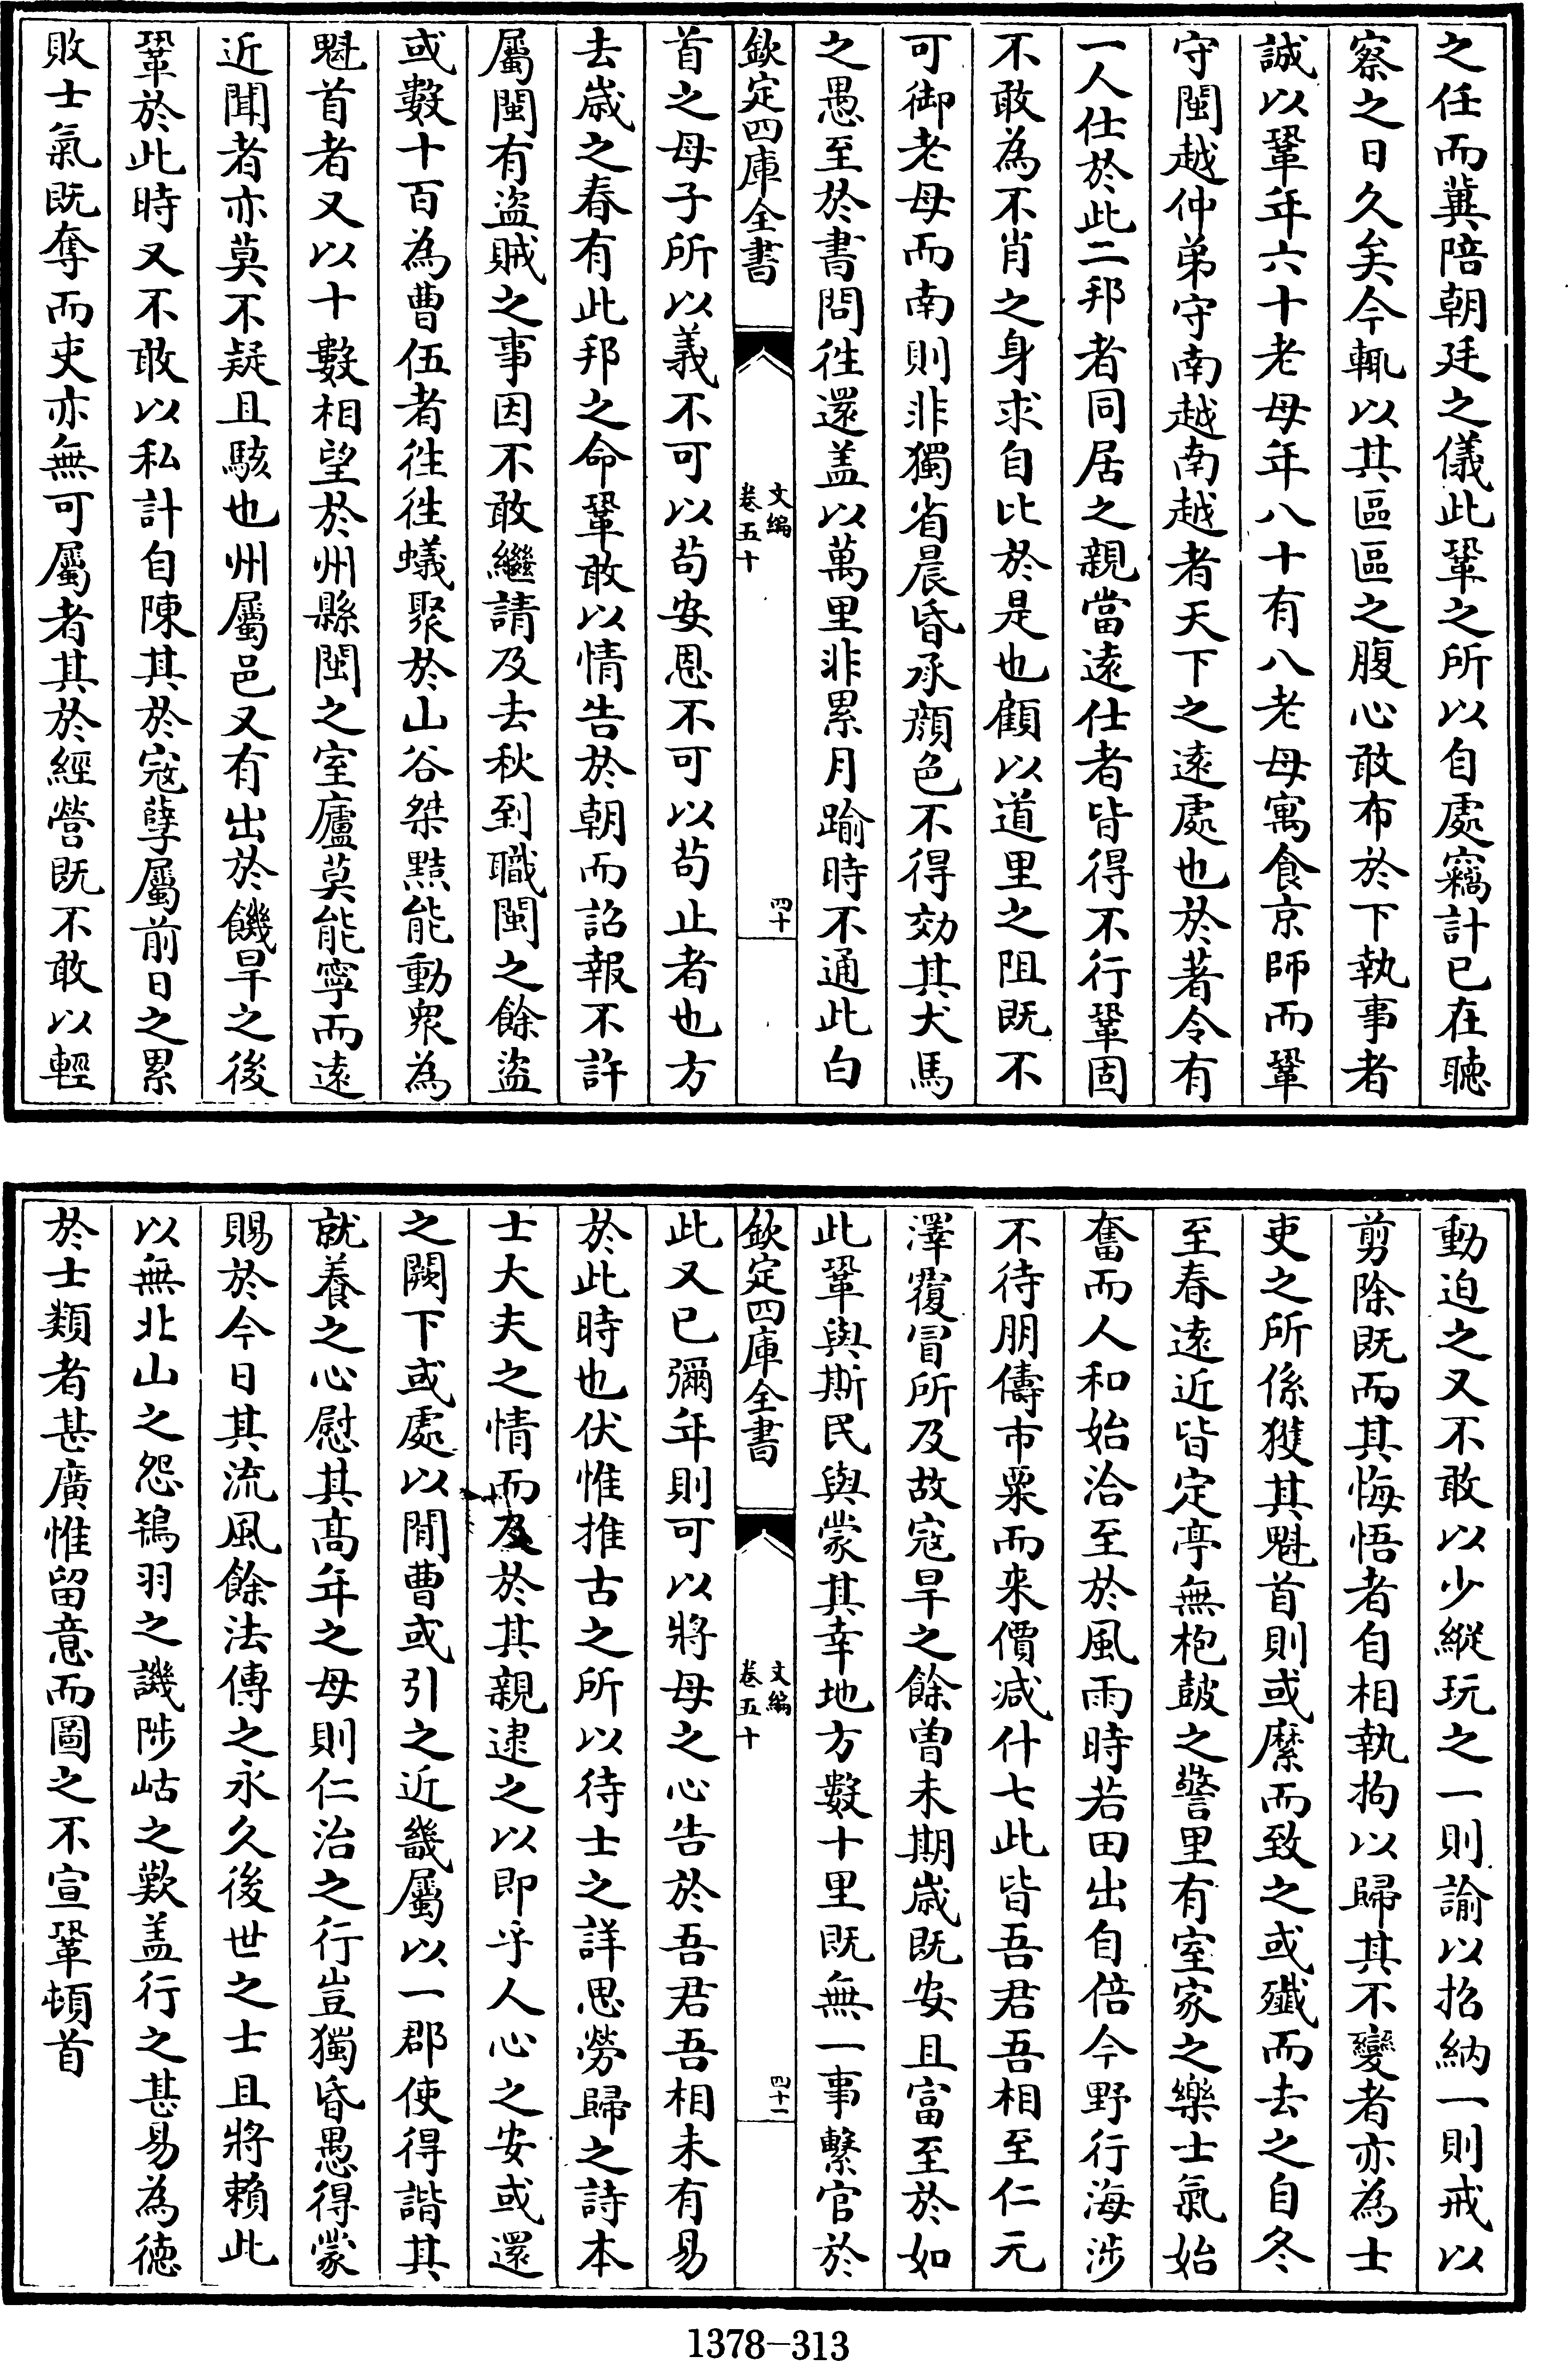 之任而冀陪朝廷之儀此鞏之所以自處竊計已在聽
察之日久矣今輒以其區區之腹心敢布於下執事者
誠以鞏年六十老母年八十有八老母寓食京師而鞏
守閩越仲弟守南越南越者天下之遠處也於著令有
一人仕於此二邦者同居之親當遠仕者皆得不行鞏固
不敢為不肖之身求自比於是也顧以道里之阻既不
可御老母而南則非獨省晨昏承顔色不得効其犬馬
之愚至於書問徃還盖以萬里非累月踰時不通此白
欽定四庫全書
文編
卷五十
四十
首之母子所以義不可以苟安恩不可以苟止者也方
去歳之春有此邦之命鞏敢以情告於朝而詔報不許
屬閩有盜賊之事因不敢繼請及去秋到職閩之餘盜
或數十百為曹伍者徃徃蟻聚於山谷桀黠能動衆為
魁首者又以十數相望於州縣閩之室廬莫能寧而遠
近聞者亦莫不疑且駭也州屬邑又有出於饑旱之後
鞏於此時又不敢以私計自陳其於寇孽屬前日之累
敗士氣既奪而吏亦無可屬者其於經營既不敢以輕
動迫之又不敢以少縱玩之一則諭以招納一則戒以
剪除既而其悔悟者自相執拘以歸其不變者亦為士
吏之所係獲其魁首則或縻而致之或殲而去之自冬
至春遠近皆定亭無枹鼓之警里有室家之樂士氣始
奮而人和始洽至於風雨時若田出自倍今野行海涉
不待朋儔市粟而來價減什七此皆吾君吾相至仁元
澤覆冒所及故寇旱之餘曾未期歳既安且富至於如
此鞏與斯民與蒙其幸地方數十里既無一事繫官於
欽定四庫全書
文編
卷五十
四十一
此又已彌年則可以將母之心告於吾君吾相未有易
於此時也伏惟推古之所以待士之詳思勞歸之詩本
士大夫之情而及於其親逮之以即乎人心之安或還
之闕下或處以閒曹或引之近畿屬以一郡使得諧其
就養之心慰其髙年之母則仁治之行豈獨昏愚得蒙
賜於今日其流風餘法傳之永久後世之士且將賴此
以無北山之怨鴇羽之譏陟岵之歎盖行之甚易為德
於士類者甚廣惟留意而圖之不宣鞏頓首
1378-313